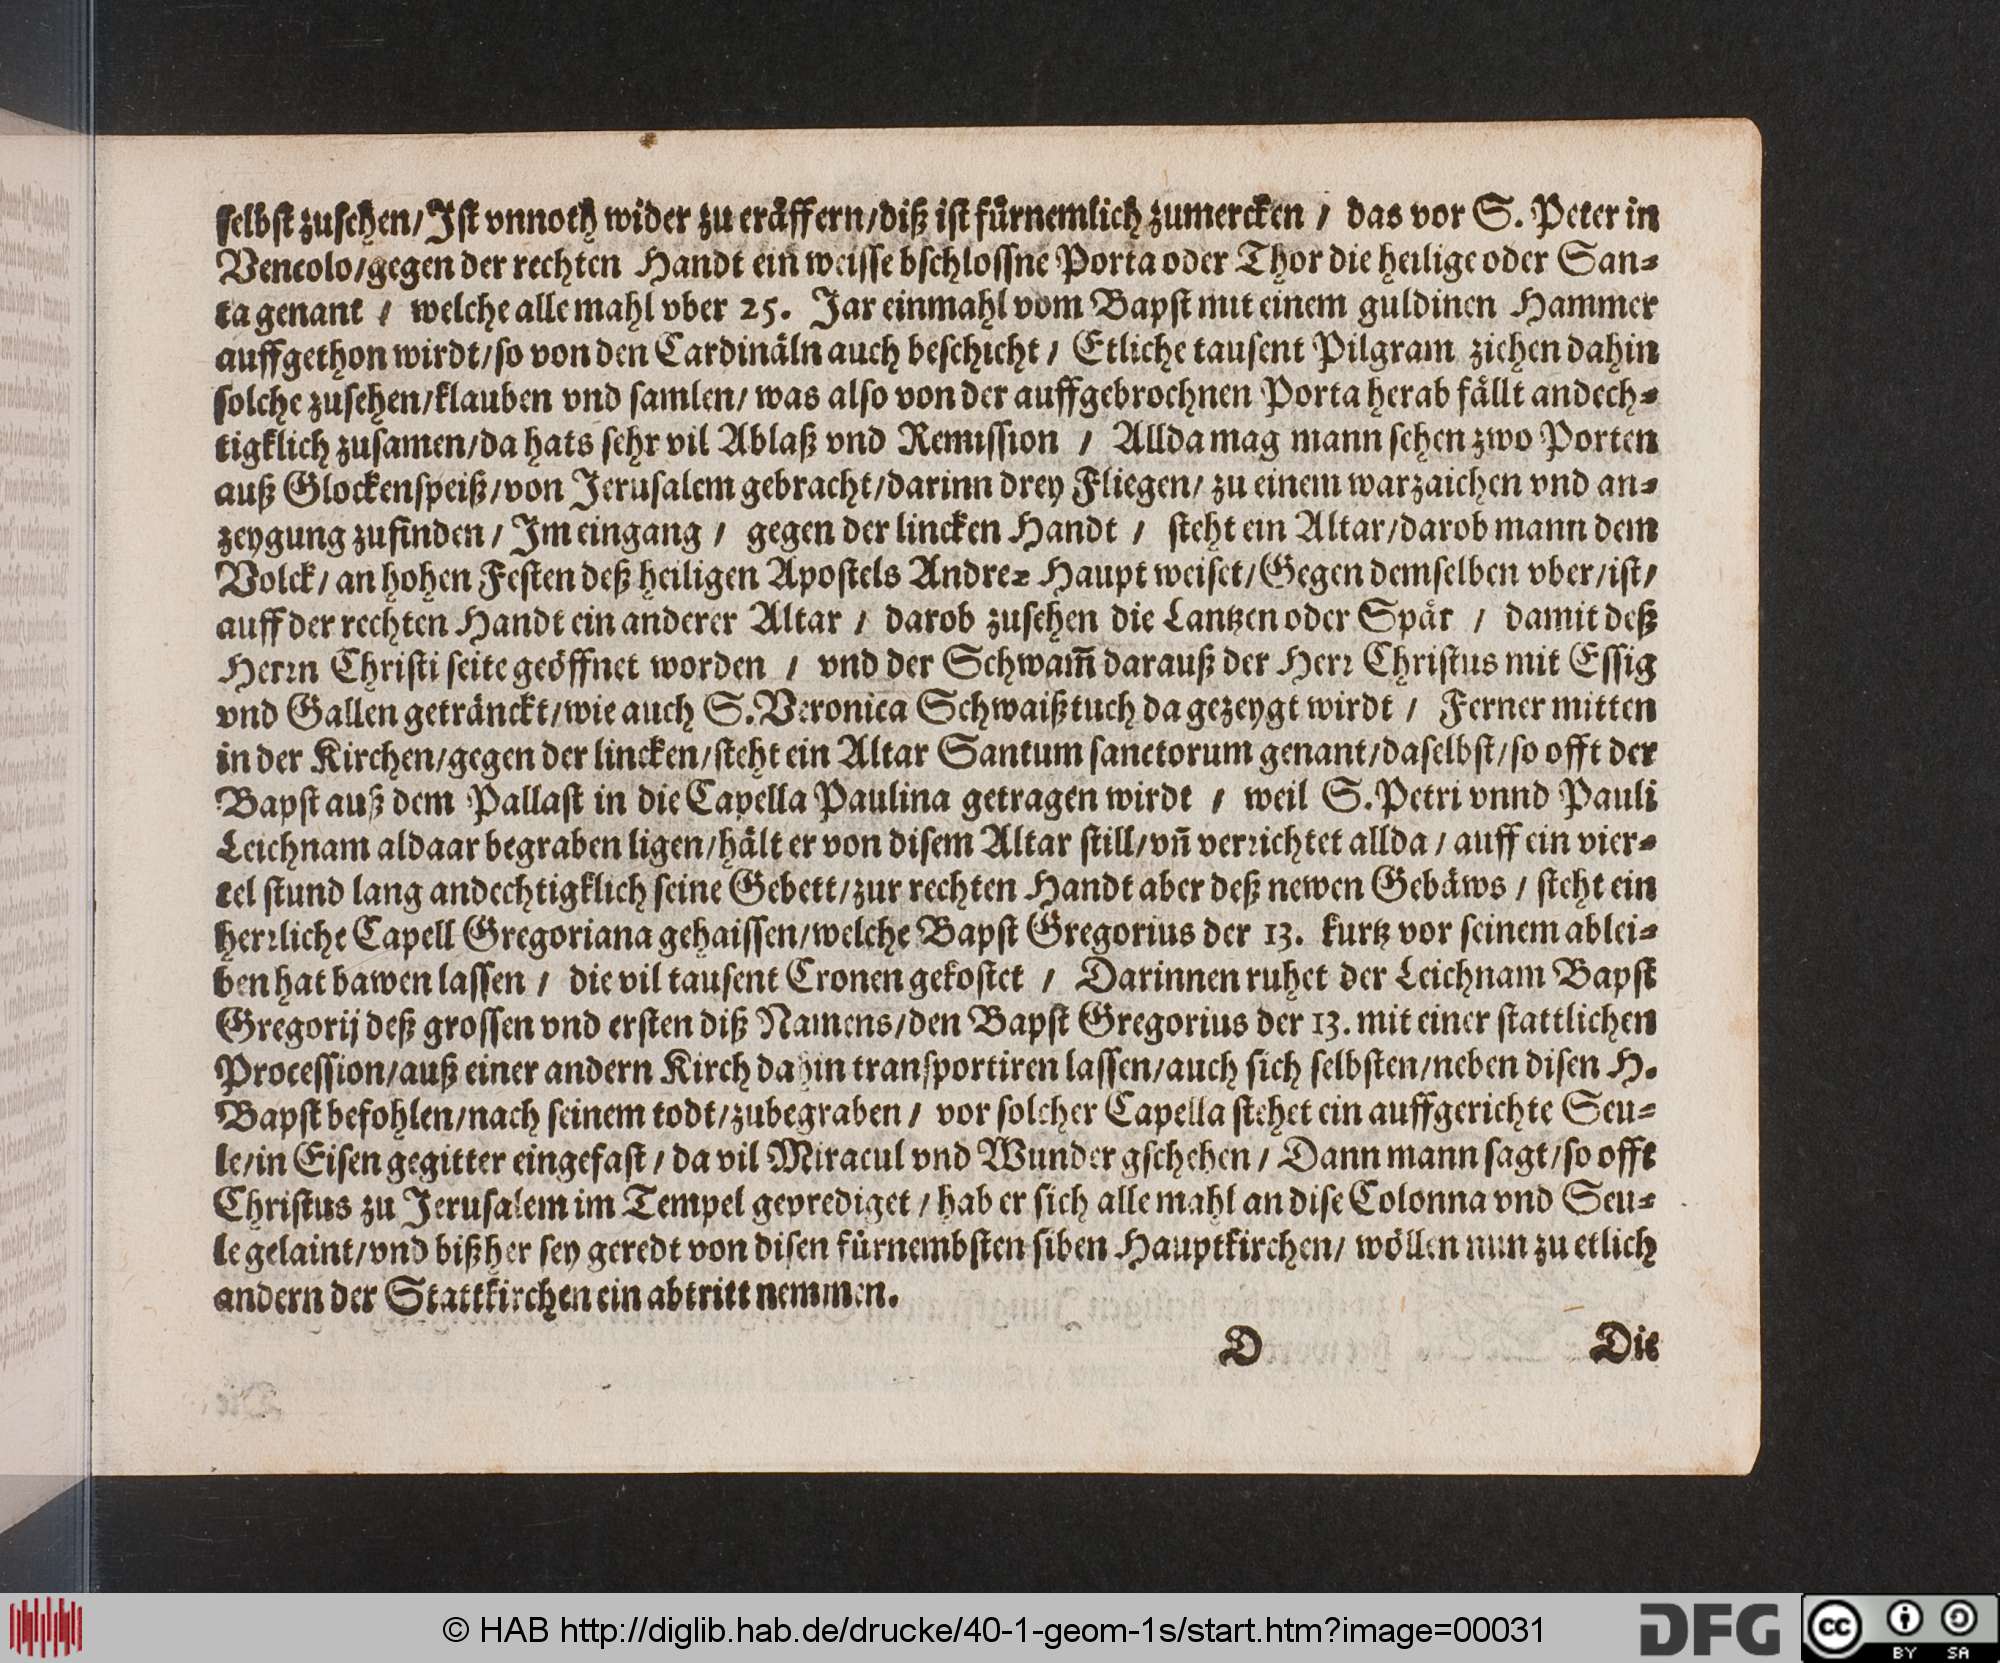 selbst zusehen/Ist vnnoth wider zu eräffern/diß ist fürnemlich zumercken / das vor S. Peter in
Vencolo/gegen der rechten Handt ein weisse bschlossne Porta oder Thor die heilige oder San⸗
ta genant / welche alle mahl vber 25. Jar einmahl vom Bapst mit einem guldinen Hammer
auffgethon wirdt/so von den Cardinäln auch beschicht / Etliche tausent Pilgram ziehen dahin
solche zusehen/klauben vnd samlen/ was also von der auffgebrochnen Porta herab fällt andech⸗
tigklich zusamen/da hats sehr vil Ablaß vnd Remission / Allda mag mann sehen zwo Porten
auß Glockenspeiß/von Jerusalem gebracht/darinn drey Fliegen/ zu einem warzaichen vnd an⸗
zeygung zufinden / Im eingang / gegen der lincken Handt / steht ein Altar/darob mann dem
Volck/ an hohen Festen deß heiligen Apostels Andreꝛ Haupt weiset/Gegen demselben vber/ist/
auff der rechten Handt ein anderer Altar / darob zusehen die Lantzen oder Spär / damit deß
Herrn Christi seite geöffnet worden / vnd der Schwam̄ darauß der Herr Christus mit Essig
vnd Gallen geträncket/wie auch S. Veronica Schwaißtuch da gezeygt wirdt / Ferner mitten
in der Kirchen/gegen der lincken/steht ein Altar Santum sanctorum genant/daselbst/so offt der
Bapst auß dem Pallast in die Capella Paulina getragen wirdt / weil S. Petri vnnd Pauli
Leichnam aldaar begraben ligen/hält er von disem Altar still/vn̄ verrichtet allda / auff ein vier⸗
tel stund lang andechtigklich seine Gebett/zur rechten Handt aber deß newen Gebäws / steht ein
herrliche Capell Gregoriana gehaissen/welche Bapst Gregorius der 13. kurtz vor seinem ablei⸗
ben hat bawen lassen / die vil tausent Cronen gekostet / Darinnen ruhet der Leichnam Bapst
Gregorij deß grossen vnd ersten diß Namens/den Bapst Gregorius der 13. mit einer stattlichen
Procession/auß einer andern Kirch dahin transportiren lassen/auch sich selbsten/neben disen H.
Bapst befohlen/nach seinem todt/zubegraben / vor solcher Capella stehet ein auffgerichte Seu⸗
le/in Eisen gegitter eingefast / da vil Miracul vnd Wunder gschehen / Dann mann sagt/so offt
Christus zu Jerusalem im Tempel geprediget / hab er sich alle mahl an dise Colonna vnd Seu⸗
le gelaint/vnd bißher sey geredt von disen fürnembsten siben Hauptkirchen/ wöllen nun zu etlich
andern der Stattkirchen ein abtritt nemmen.
D Die
© HAB http://diglib.hab.de/drucke/40-1-geom-1s/start.htm?image=00031 DFG cc BY SA